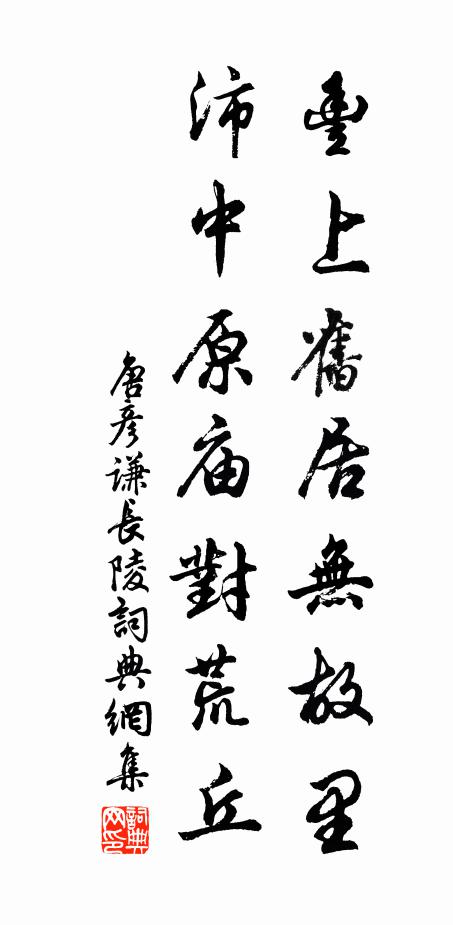 豐上舊居無故里
沛中原庙對荒丘
唐彦谦長陵詞典網集
詞典网印